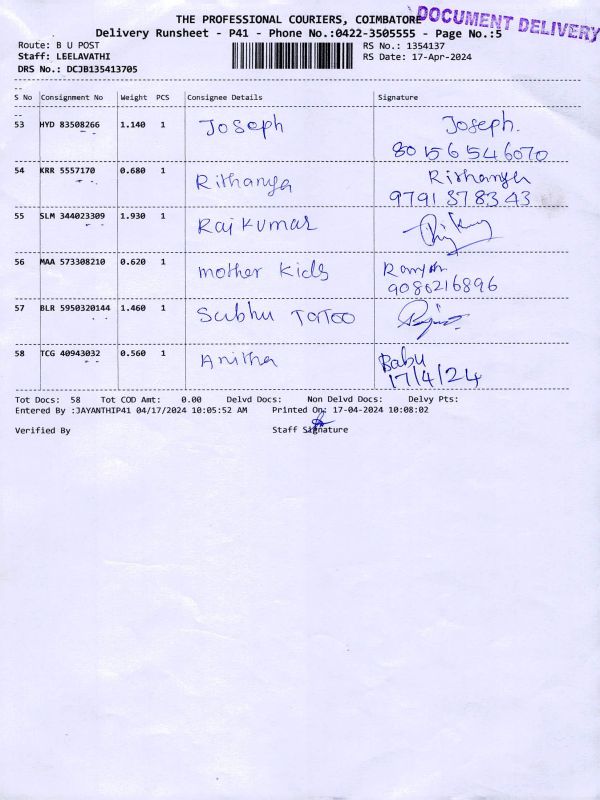 THE PROFESSIONAL COURIERS, COIMBATORE
DOCUMENT DELIVERY
Delivery Runsheet - P41 - Phone No.:0422-3505555 - Page No.:5
Route: B U POST
RS No.: 1354137
Staff: LEELAVATHI
RS Date: 17-Apr-2024
DRS No.: DCJB135413705
S No Consignment No Weight PCS Consignee Details Signature
53 HYD 83508266 1.140 1 Joseph Joseph.
80 156 546070
54 KRR 5557170 0.680 1 Rithanya Rithanya
9791 378343
55 SLM 344023309 1.930 1 Raj Kumar
56 MAA 573308210 0.620 1 mother Kids
9080216896
57 BLR 5950320144 1.460 1 Subhu TaTOO
58 TCG 40943032 0.560 1 Anitha Babu
17/4/24
Tot Docs: 58 Tot COD Amt: 0.00 Delvd Docs: Non Delvd Docs: Delvy Pts:
Entered By :JAYANTHIP41 04/17/2024 10:05:52 AM Printed On: 17-04-2024 10:08:02
Verified By Staff Signature